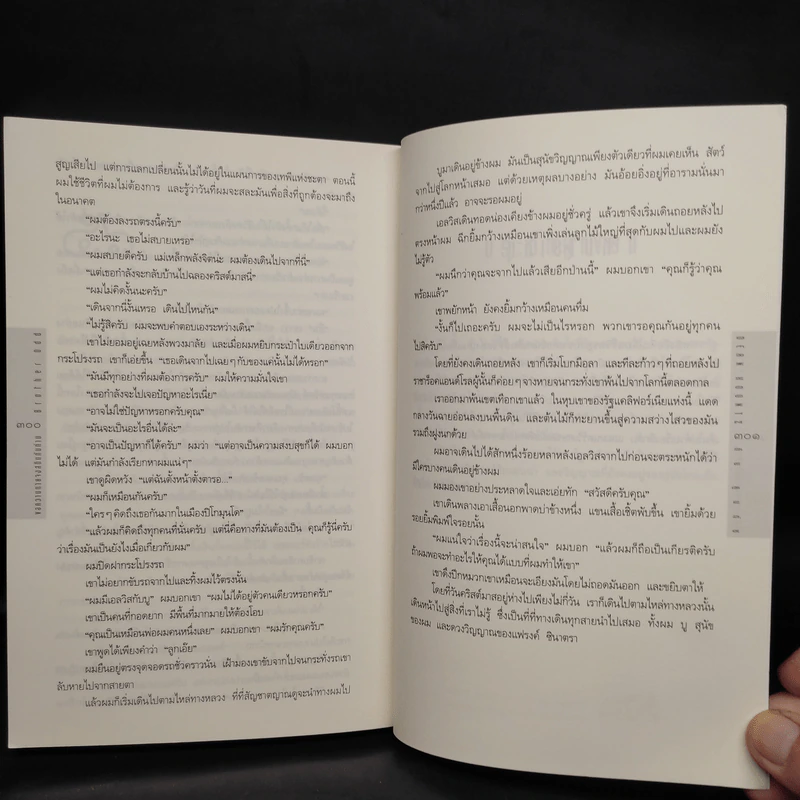 สูญเสียไป แต่การแลกเปลี่ยนนั้นไม่ได้อยู่ในแผนการของเทพีแห่งชะตา ตอนนี้
ผมใช้ชีวิตที่ผมไม่ต้องการ และรู้ว่าวันที่ผมจะสละมันเพื่อสิ่งที่ถูกต้องจะมาถึง
ในอนาคต
“ผมต้องลงรถตรงนี้ครับ”
“อะไรนะ เธอไม่สบายเหรอ”
“ผมสบายดีครับ แม่เหล็กพลังจิตน่ะ ผมต้องเดินไปจากที่นี่”
“แต่เธอกำลังจะกลับบ้านไปฉลองคริสต์มาสนี่”
“ผมไม่คิดงั้นนะครับ”
“เดินจากนี่งั้นเหรอ เดินไปไหนกัน”
“ไม่รู้สิครับ ผมจะพบคำตอบเองระหว่างเดิน”
เขาไม่ยอมอยู่เฉยหลังพวงมาลัย และเมื่อผมหยิบกระเป๋าใบเดียวออกจาก
กระโปรงรถ เขาก็เอ่ยขึ้น “เธอเดินจากไปเฉยๆ กับของแค่นั้นไม่ได้หรอก”
“มันมีทุกอย่างที่ผมต้องการครับ” ผมให้ความมั่นใจเขา
“เธอกำลังจะไปเจอปัญหาอะไรเนี่ย”
“อาจไม่ใช่ปัญหาหรอกครับคุณ”
“มันจะเป็นอะไรอื่นได้ล่ะ”
“อาจเป็นปัญหาก็ได้ครับ” ผมว่า “แต่อาจเป็นความสงบสุขก็ได้ ผมบอก
ไม่ได้ แต่มันกำลังเรียกหาผมแน่ๆ”
เขาดูผิดหวัง “แต่ฉันตั้งหน้าตั้งตารอ...”
“ผมก็เหมือนกันครับ”
“ใครๆ คิดถึงเธอกันมากในเมืองปิโกมุนโด”
“แล้วผมก็คิดถึงทุกคนที่นั่นครับ แต่นี่คือทางที่มันต้องเป็น คุณก็รู้นี่ครับ
ว่าเรื่องมันเป็นยังไงเมื่อเกี่ยวกับผม”
ผมปิดฝากระโปรงรถ
เขาไม่อยากขับรถจากไปและทิ้งผมไว้ตรงนั้น
“ผมมีเอลวิสกับบู” ผมบอกเขา “ผมไม่ได้อยู่ตัวคนเดียวหรอกครับ”
เขาเป็นคนที่กอดยาก มีพื้นที่มากมายให้ต้องโอบ
“คุณเป็นเหมือนพ่อผมคนหนึ่งเลย” ผมบอกเขา “ผมรักคุณครับ”
เขาพูดได้เพียงคำว่า “ลูกเอ๊ย”
ผมยืนอยู่ตรงจุดจอดรถชั่วคราวนั่น เฝ้ามองเขาขับจากไปจนกระทั่งรถเขา
ลับหายไปจากสายตา
แล้วผมก็เริ่มเดินไปตามไหล่ทางหลวง ที่ที่สัญชาตญาณดูจะนำทางผมไป
๓๐๐
brother odd
บูมาเดินอยู่ข้างผม มันเป็นสุนัขวิญญาณเพียงตัวเดียวที่ผมเคยเห็น สัตว์
จากไปสู่โลกหน้าเสมอ แต่ด้วยเหตุผลบางอย่าง มันอ้อยอิ่งอยู่ที่อารามนั่นมา
กว่าหนึ่งปีแล้ว อาจจะรอผมอยู่
เอลวิสเดินทอดน่องเคียงข้างผมอยู่ชั่วครู่ แล้วเขาจึงเริ่มเดินถอยหลังไป
ตรงหน้าผม ฉีกยิ้มกว้างเหมือนเขาเพิ่งเล่นลูกไม้ใหญ่ที่สุดกับผมไปและผมยัง
ไม่รู้ตัว
“ผมนึกว่าคุณจะจากไปแล้วเสียอีกป่านนี้” ผมบอกเขา “คุณก็รู้ว่าคุณ
พร้อมแล้ว”
เขาพยักหน้า ยังคงยิ้มกว้างเหมือนคนทึ่ม
“งั้นก็ไปเถอะครับ ผมจะไม่เป็นไรหรอก พวกเขารอคุณกันอยู่ทุกคน
ไปสิครับ”
โดยที่ยังคงเดินถอยหลัง เขาก็เริ่มโบกมือลา และทีละก้าวๆ ที่ถอยหลังไป
ราชาร็อคแอนด์โรลผู้นั้นก็ค่อยๆ จางหายจนกระทั่งเขาพ้นไปจากโลกนี้ตลอดกาล
เราออกมาพ้นเขตเทือกเขาแล้ว ในหุบเขาของรัฐแคลิฟอร์เนียแห่งนี้ แดด
กลางวันฉายอ่อนลงบนพื้นดิน และต้นไม้ก็ทะยานขึ้นสู่ความสว่างไสวของมัน
รวมถึงฝูงนกด้วย
ผมอาจเดินไปได้สักหนึ่งร้อยหลาหลังเอลวิสจากไปก่อนจะตระหนักได้ว่า
มีใครบางคนเดินอยู่ข้างผม
ผมมองเขาอย่างประหลาดใจและเอ่ยทัก “สวัสดีครับคุณ”
เขาเดินพลางเอาเสื้อนอกพาดบ่าข้างหนึ่ง แขนเสื้อเชิ้ตพับขึ้น เขายิ้มด้วย
รอยยิ้มพิมพ์ใจรอยนั้น
“ผมแน่ใจว่าเรื่องนี้จะน่าสนใจ” ผมบอก “แล้วผมก็ถือเป็นเกียรติครับ
ถ้าผมพอจะทำอะไรให้คุณได้แบบที่ผมทำให้เขา”
เขาดึงปีกหมวกเขาเหมือนจะเอียงมันโดยไม่ถอดมันออก และขยิบตาให้
โดยที่วันคริสต์มาสอยู่ห่างไปเพียงไม่กี่วัน เราก็เดินไปตามไหล่ทางหลวงนั้น
เดินหน้าไปสู่สิ่งที่เราไม่รู้ ซึ่งเป็นที่ที่ทางเดินทุกสายนำไปเสมอ ทั้งผม บู สุนัข
ของผม และดวงวิญญาณของแฟรงค์ ซินาตรา
๓๐๑